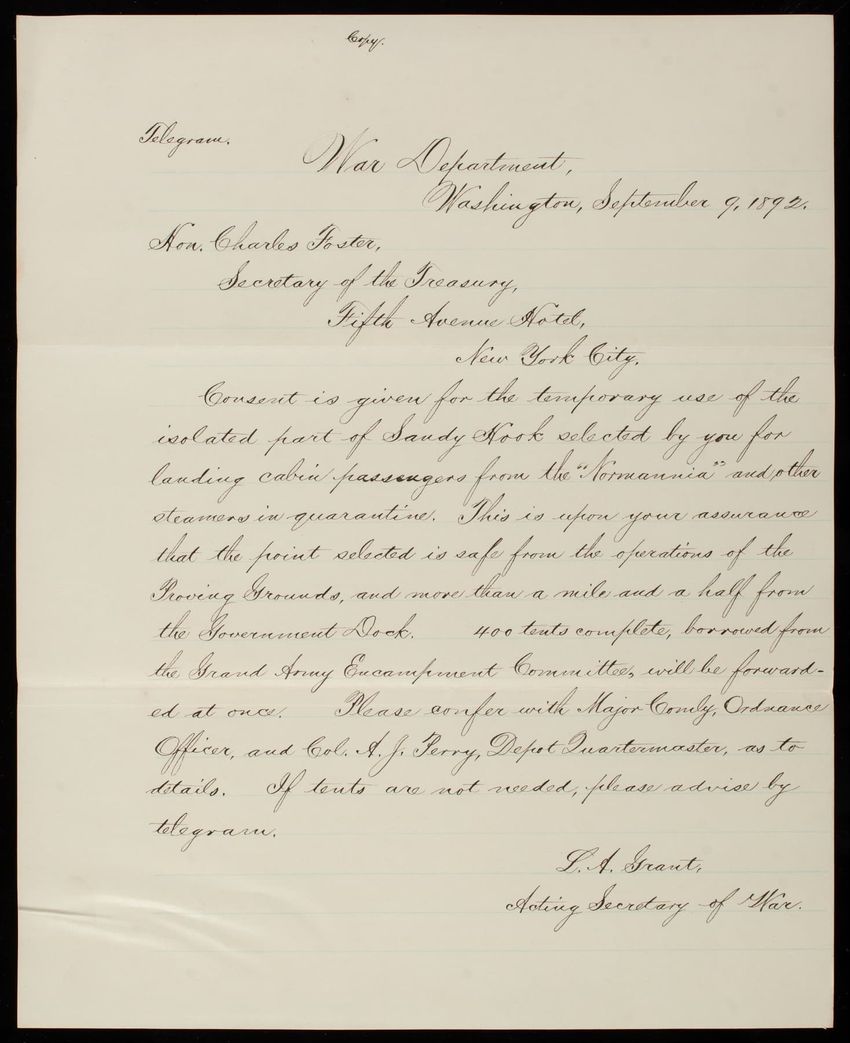 Copy.
Telegram.
War Department,
Washington, September 9, 1892.
Hon. Charles Foster,
Secretary of the Treasury,
Fifth Avenue Hotel,
New York City.
Consent is given for the temporary use of the
isolated part of Sandy Hook selected by you for
landing cabin passengers from the "Normannia" and other
steamers in quarantine. This is upon your assurance
that the point selected is safe from the operations of the
Proving Grounds, and more than a mile and a half from
the Government Dock. 400 tents complete, borrowed from
the Grand Army Encampment Committee, will be forward-
ed at once. Please confer with Major Comly, Ordnance
Officer, and Col. A. J. Perry, Depot Quartermaster, as to
details. If tents are not needed, please advise by
telegram.
L. A. Grant,
Acting Secretary of War.